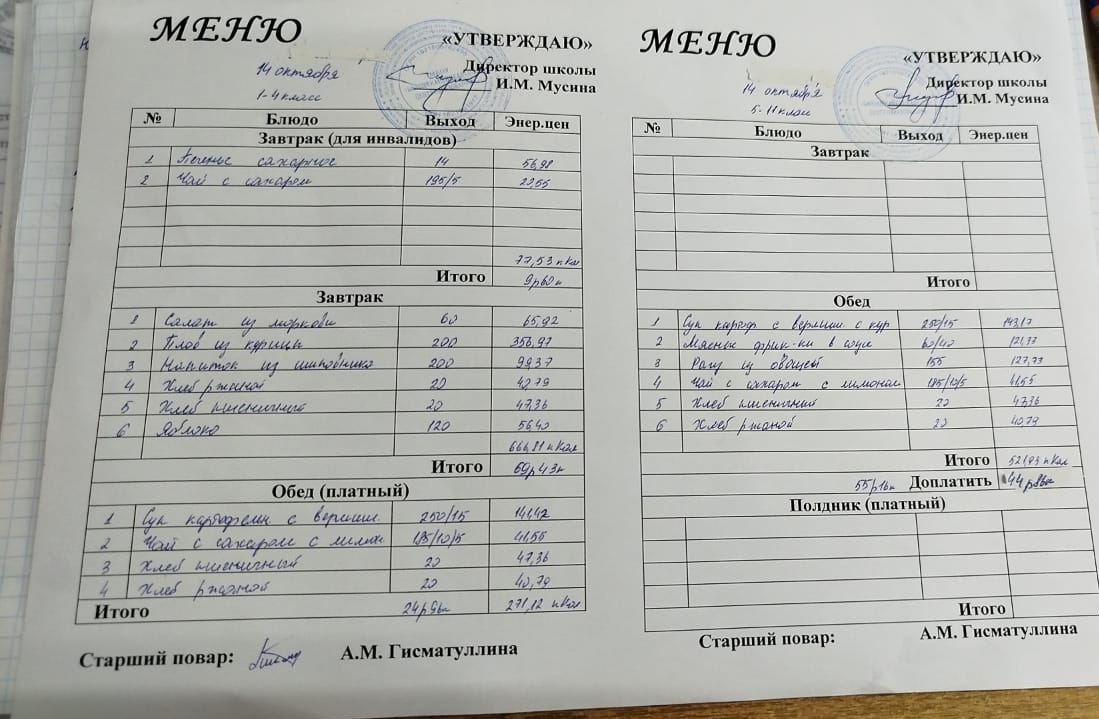 МЕНЮ
«УТВЕРЖДАЮ»
14 октября
Директор школы
И.М. Мусина
1-4 класс
№ Блюдо Выход Энер.цен
Завтрак (для инвалидов)
1 Печенье сахарное 14 56,98
2 Чай с сахаром 195/5 20,55
77,53 кКал
Итого 9р60к
Завтрак
1 Салат из моркови 60 65,92
2 Плов из курицы 200 356,97
3 Напиток из шиповника 200 99,37
4 Хлеб ржаной 20 40,79
5 Хлеб пшеничный 20 47,36
6 Яблоко 120 56,40
666,81 кКал
Итого 69р43к
Обед (платный)
1 Суп картофельн с вермиш. 250/15 141,42
2 Чай с сахаром с лимон 185/10/5 41,55
3 Хлеб пшеничный 20 47,36
4 Хлеб ржаной 20 40,79
Итого 24р96к 271,12 кКал
Старший повар: А.М. Гисматуллина
МЕНЮ
«УТВЕРЖДАЮ»
14 октября
Директор школы
И.М. Мусина
5-11 класс
№ Блюдо Выход Энер.цен
Завтрак
Итого
Обед
1 Суп картоф. с вермиш. с кур 250/15 143,17
2 Мясные фрик-ки в соусе 60/40 121,33
3 Рагу из овощей 155 127,73
4 Чай с сахаром с лимоном 185/10/5 41,55
5 Хлеб пшеничный 20 47,36
6 Хлеб ржаной 20 40,79
Итого 521,93 кКал
55р16к Доплатить 44р86к
Полдник (платный)
Итого
Старший повар: А.М. Гисматуллина